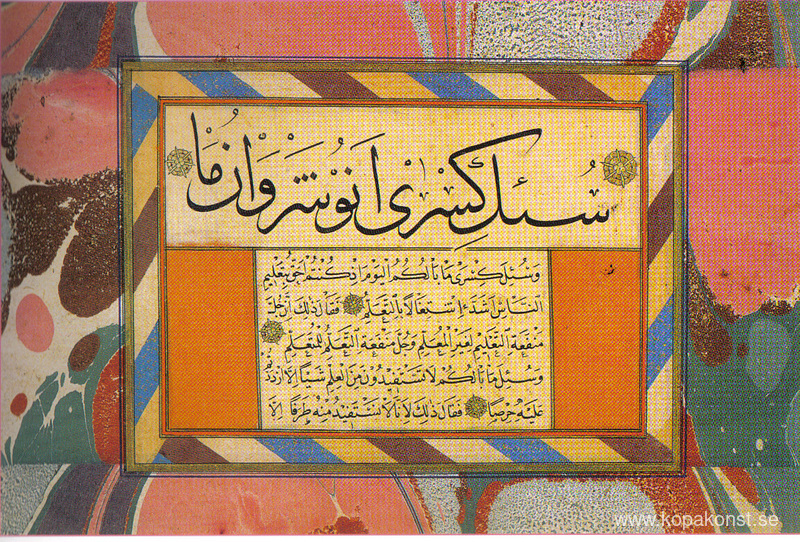 سُئِلَ كِسْرَى اَنُوشَرْوَانْ مَا
وَسُئِلَ كِسْرَى مَا بَالُكُمُ الْيَوْمَ اِذْ كُنْتُمْ اَحَقَّ بِتَعْلِيمِ
النَّاسِ اَشَدَّ اِسْتِعْمَالًا بِالتَّعَلُّمِ فَقَالَ ذٰلِكَ اَنَّ جُلَّ
مَنْفَعَةِ التَّعْلِيمِ لِغَيْرِ الْمُعَلِّمِ وَجُلَّ مَنْفَعَةِ التَّعَلُّمِ لِلْمُتَعَلِّمِ
وَسُئِلَ مَا بَالُكُمْ لَا تَسْتَفِيدُونَ مِنَ الْعِلْمِ شَيْئًا اِلَّا ازْدَدْتُمْ
عَلَيْهِ حِرْصًا فَقَالَ ذٰلِكَ لِاَنَّا لَا نَسْتَفِيدُ مِنْهُ طَرَفًا اِلَّا
www.kopakonst.se